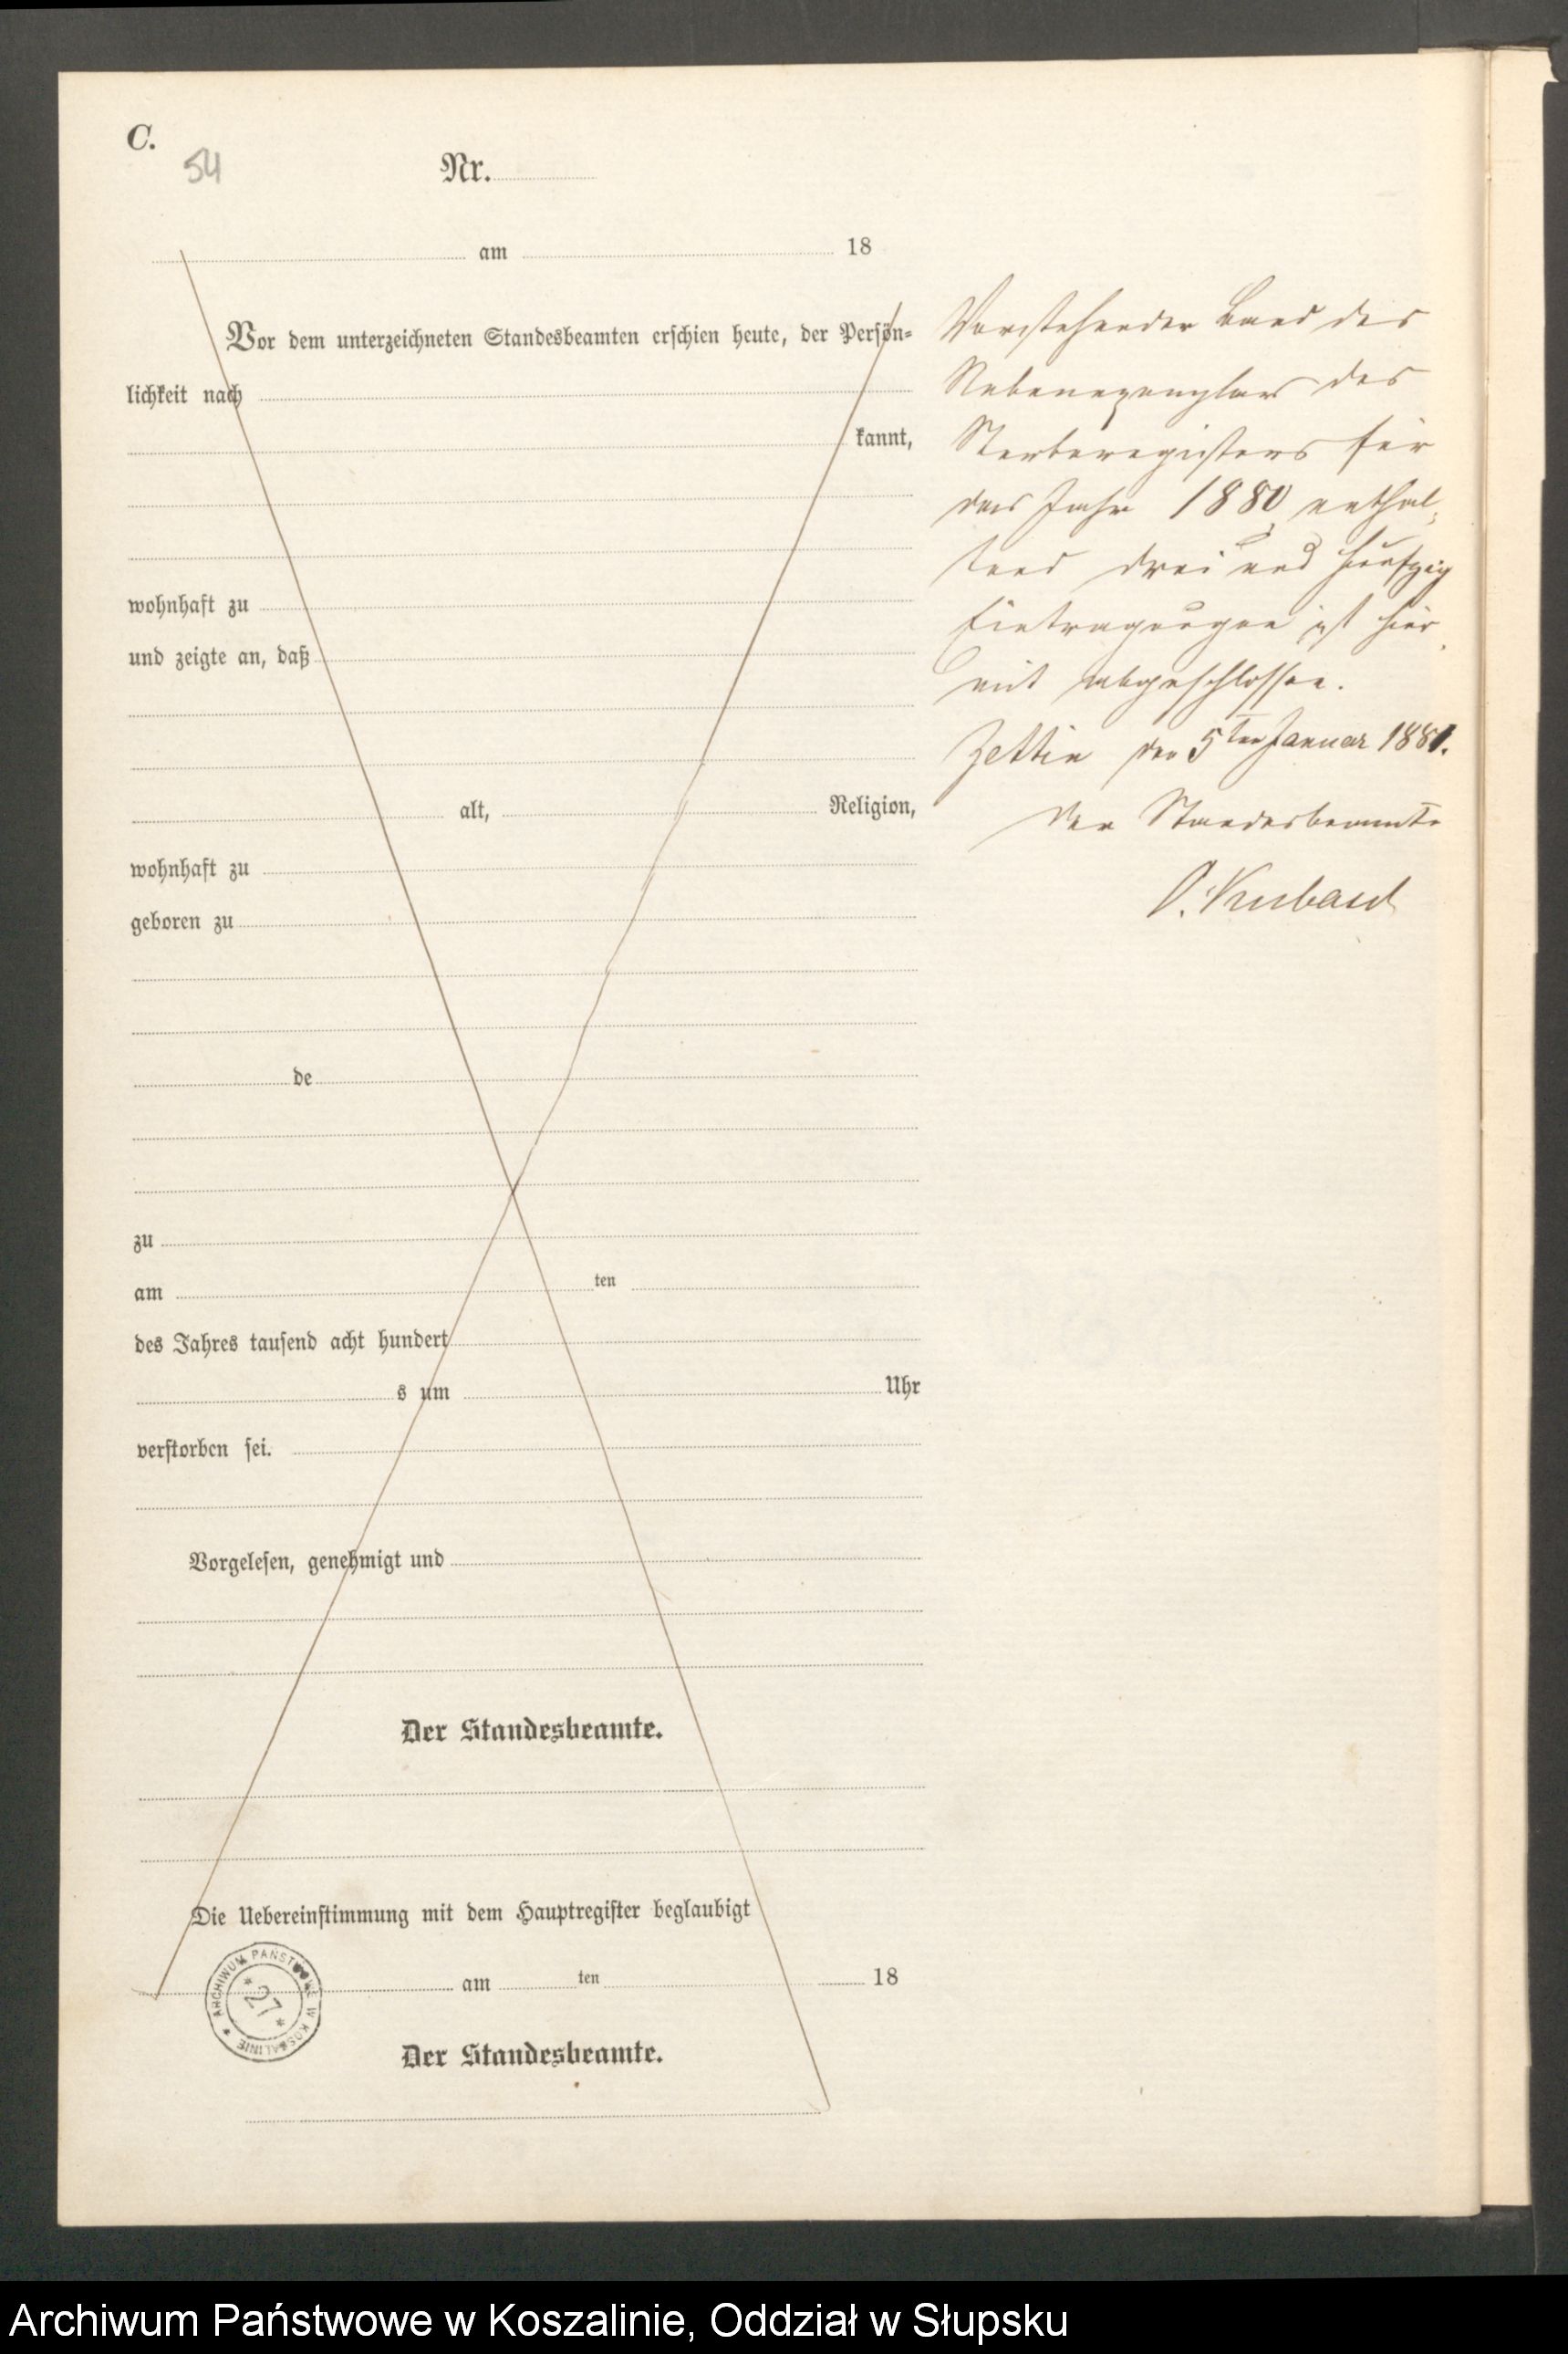 C.
54
Nr.
am 18
Vor dem unterzeichneten Standesbeamten erschien heute, der Persön-
lichkeit nach
kannt,
wohnhaft zu
und zeigte an, daß
alt, Religion,
wohnhaft zu
geboren zu
de
zu
am ten
des Jahres tausend acht hundert
s um Uhr
verstorben sei.
Vorgelesen, genehmigt und
Der Standesbeamte.
Die Uebereinstimmung mit dem Hauptregister beglaubigt
am ten 18
Der Standesbeamte.
Vorstehender Band des
Nebenexemplars des
Sterberegisters für
das Jahr 1880 enthal-
tend drei und fünfzig
Eintragungen ist hier-
mit abgeschlossen.
Zettin den 5ten Januar 1881.
Der Standesbeamte
ARCHIWUM PAŃSTWOWE W KOSZALINIE
* 27 *
Archiwum Państwowe w Koszalinie, Oddział w Słupsku